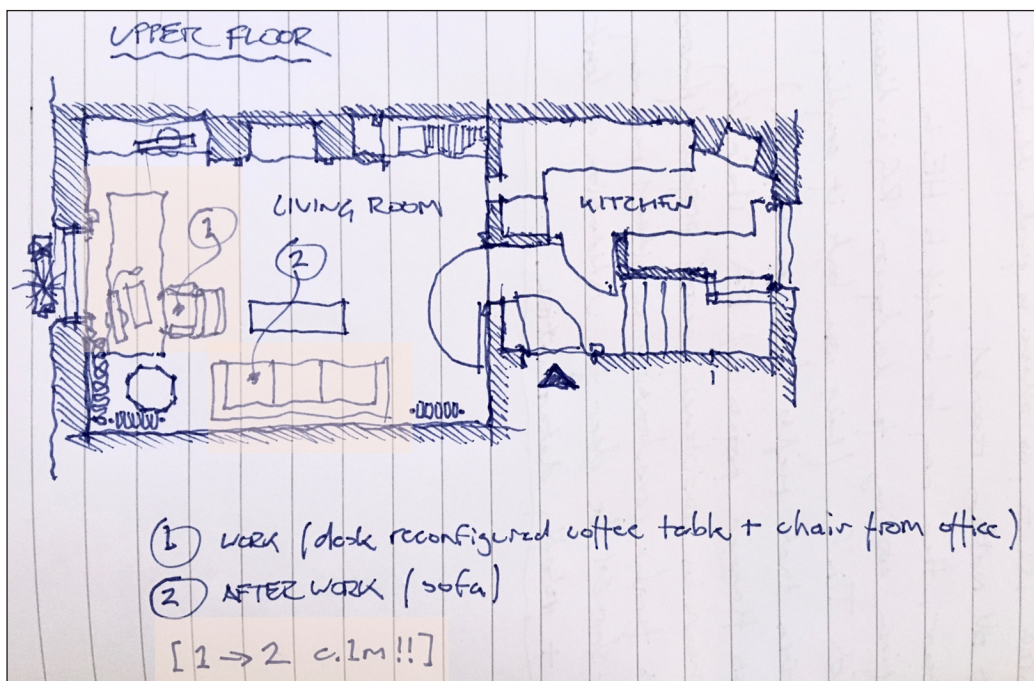 UPPER FLOOR
LIVING ROOM
KITCHEN
1
2
1 WORK (desk reconfigured coffee table + chair from office)
2 AFTER WORK (sofa)
[1 → 2 c.1m!!]